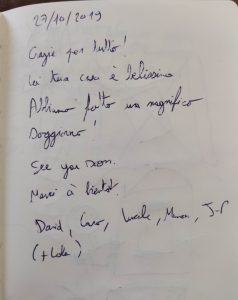 27/10/2019
Grazie per tutto!
La tua casa è belissima
Abbiamo fatto un magnifico
Soggiorno!
See you soon.
Merci à bientôt.
David, Caro, Lucile, Manon, J-P
(+ Lola)